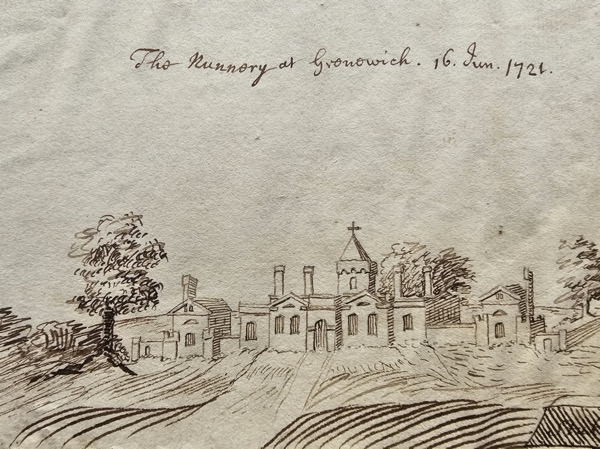 The Nunnery at Grenewich. 16. Jun. 1721.